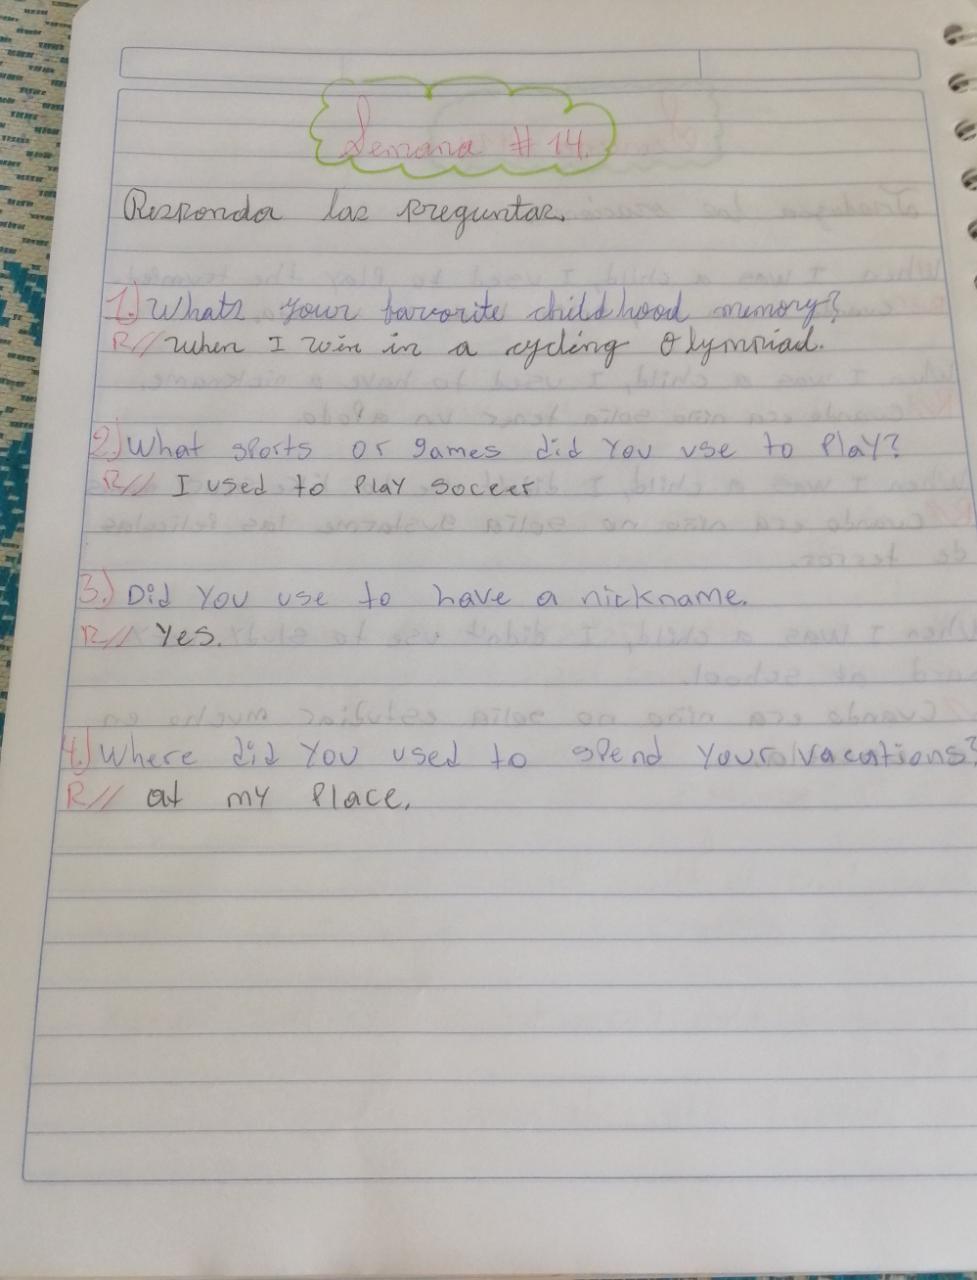 Semana # 14.
Responda las preguntas.
1.) Whats your favorite childhood memory?
R// When I win in a cycling Olympiad.
2.) What sports or games did You use to Play?
R// I used to Play soccer
3.) Did You use to have a nickname.
R// Yes.
4.) Where did You used to spend Your vacations?
R// at my Place.